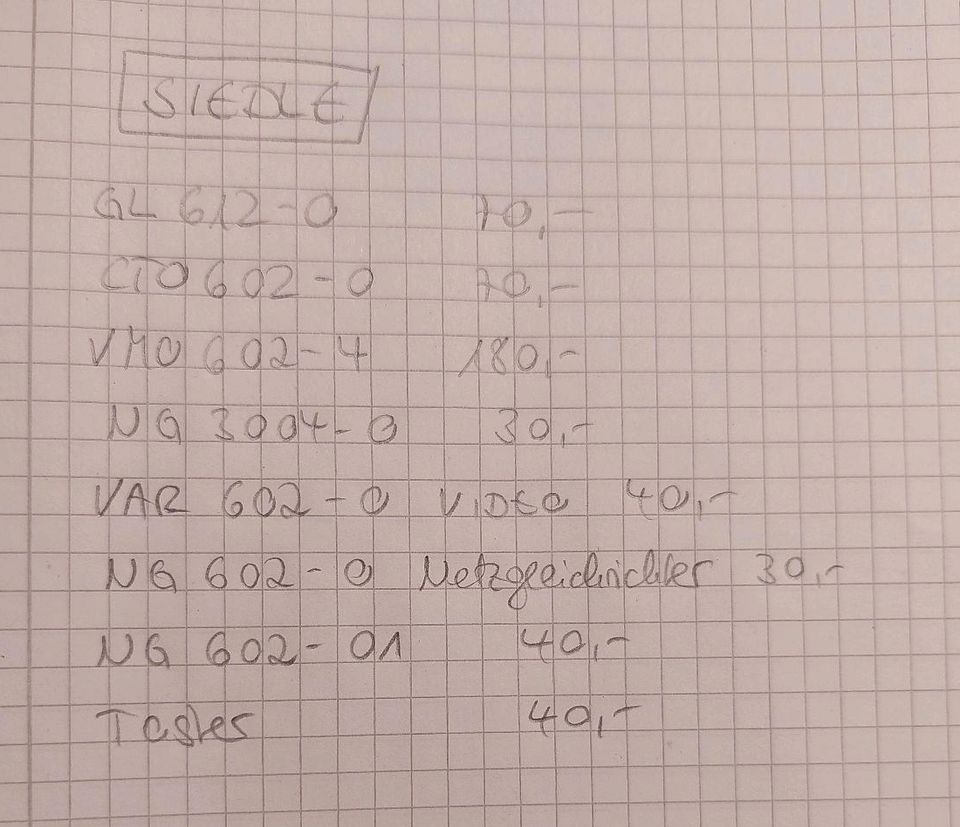 SIEDLE
GL 612-0 70,-
CTO 602-0 70,-
VMO 602-4 180,-
NG 3004-0 30,-
VAR 602-0 VIDEO 40,-
NG 602-0 Netzgleichrichter 30,-
NG 602-01 40,-
Taster 40,-